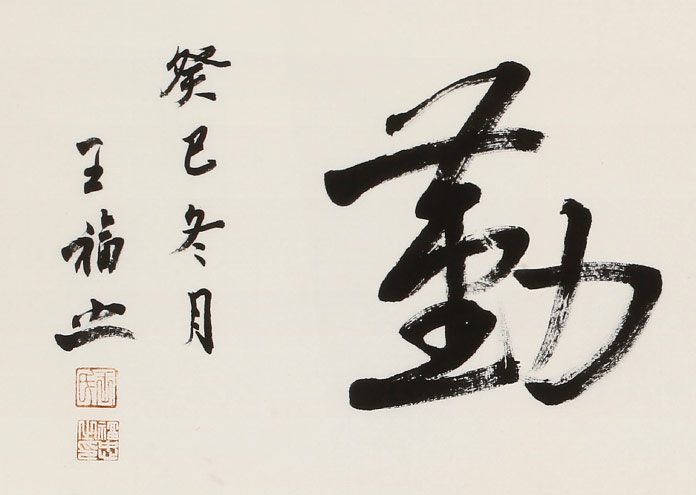 勤
癸巳冬月
王福忠